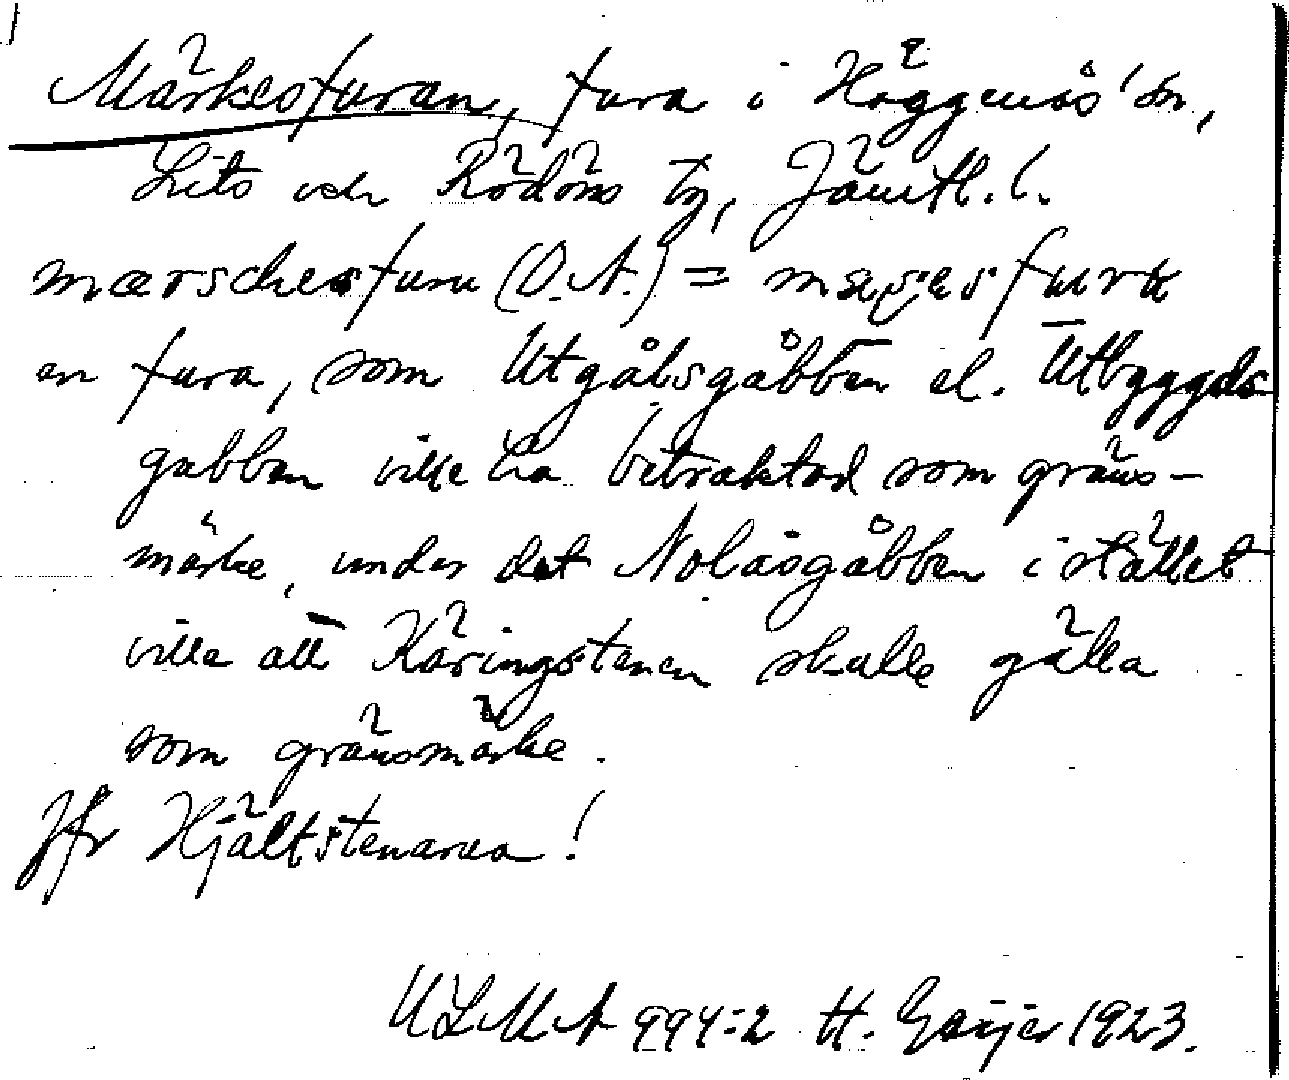 Märkesfuran, fura i Häggenås' sn,
Lits och Rödöns tg, Jämtl. l.
mærschesfuru (O.N.) =
en fura, som Utgålsgåbben el. Utbyggds-
gubben ville ha betraktad som gräns-
märke, under det Nolåsgåbben i stället
ville att Käringstenen skulle gälla
som gränsmärke.
Jfr Hjältstenarna!
ULMA 994:2 H. Geijer 1923.